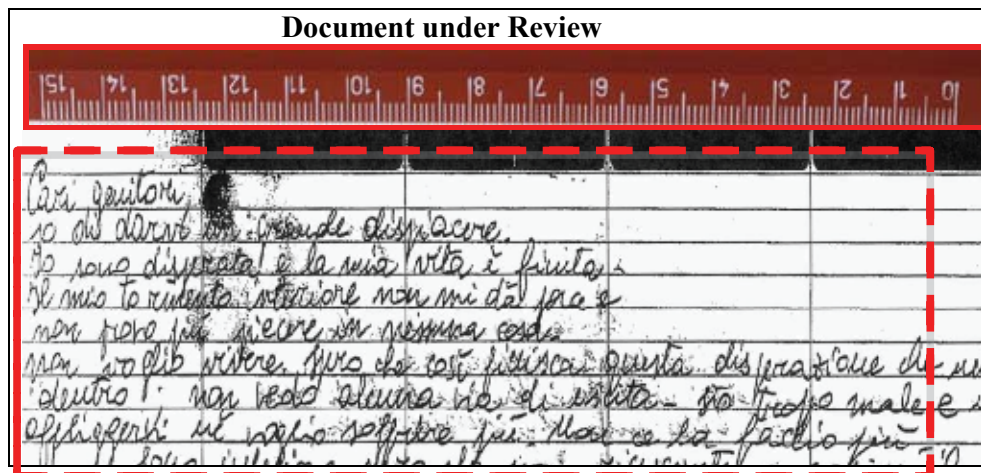 Document under Review
15 14 13 12 11 10 9 8 7 6 5 4 3 2 1 0
Cari genitori,
so di darvi un grande dispiacere.
Io sono disperata e la mia vita è finita.
Il mio tormento interiore non mi dà pace e
non provo più piacere in nessuna cosa.
non voglio vivere. spero che così finisca questa disperazione che
dentro. non vedo alcuna via di uscita - sto troppo male e
affliggervi né voglio soffrire più. Non ce la faccio più